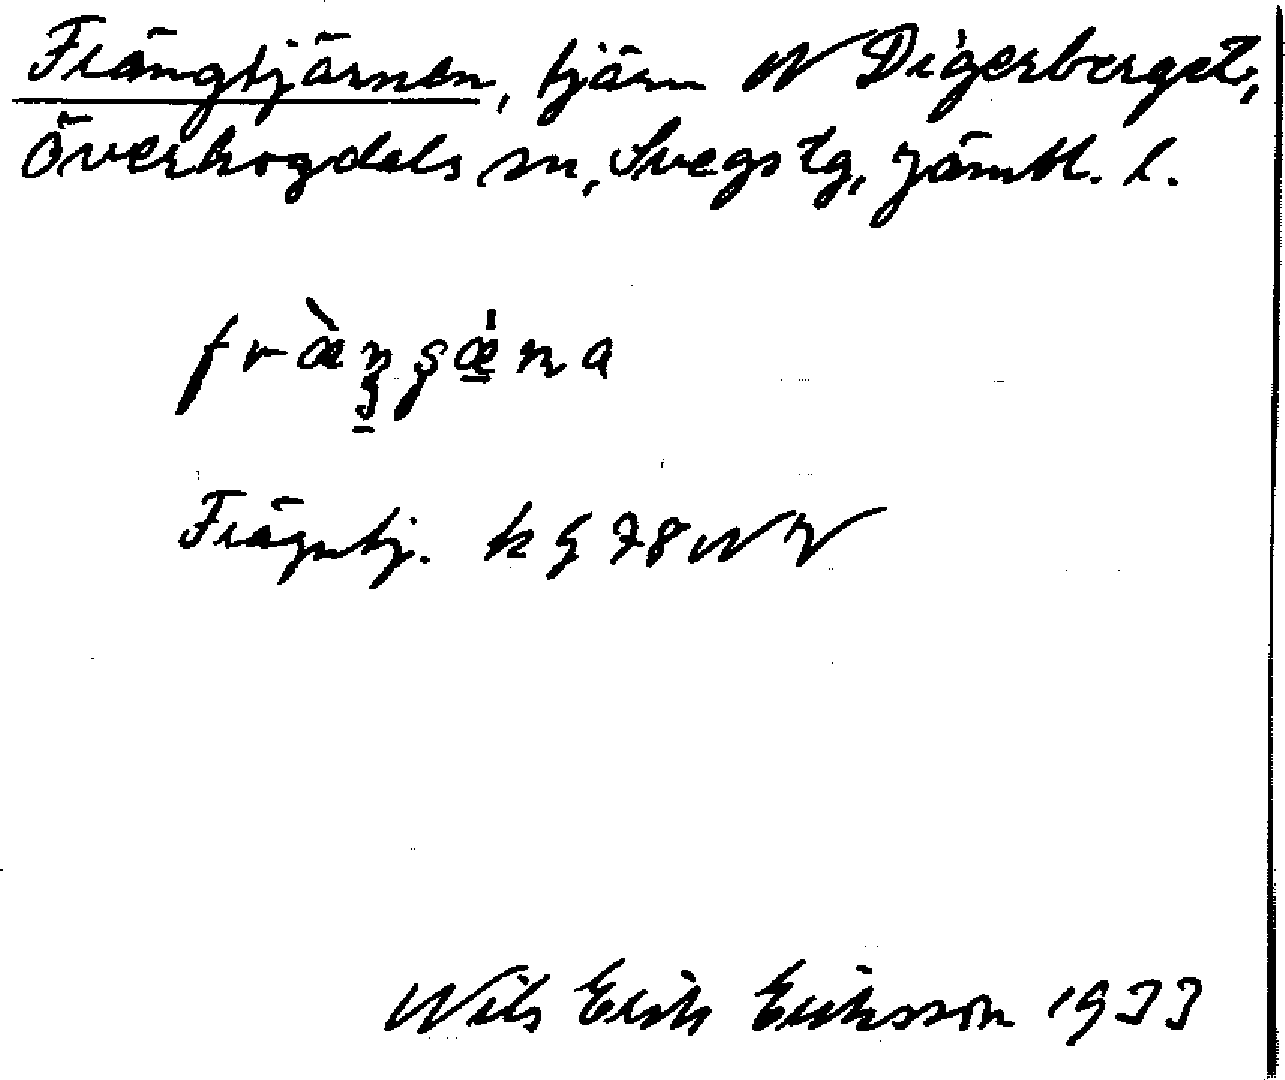 Frängtjärnen, tjärn N Digerberget,
Överhogdals sn, Svegs tg, Jämtl. l.
Frägntj. k G 78 NV
Nils Erik Eriksson 1933